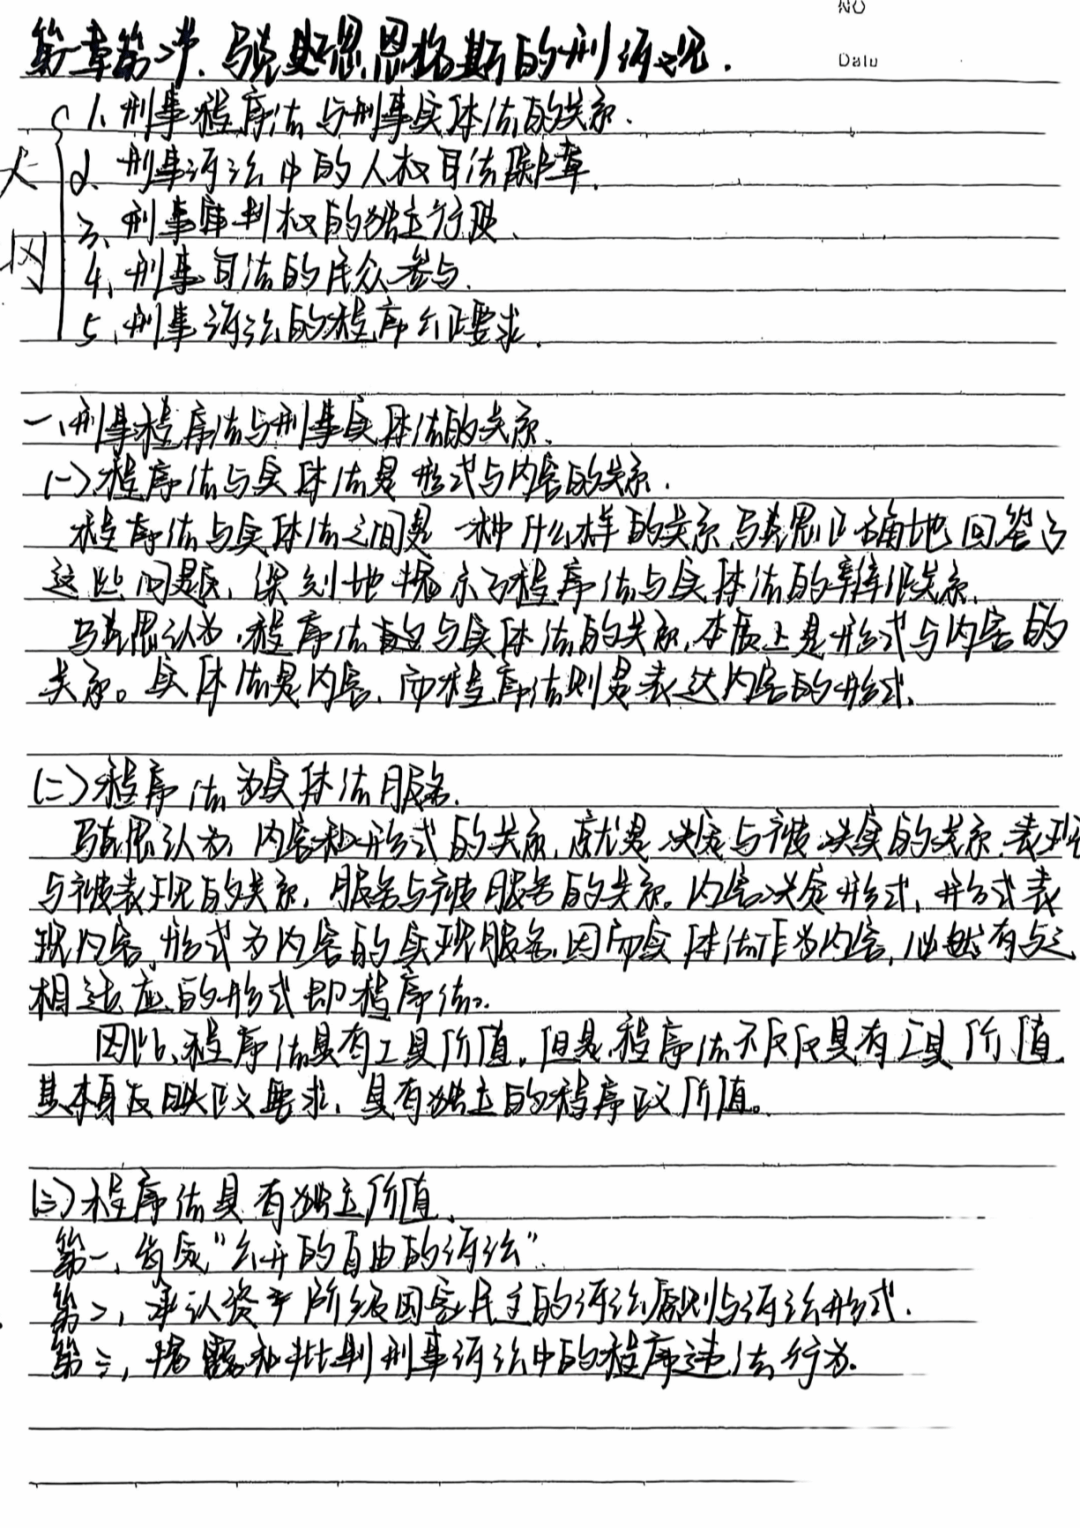 NO
Date
第一章第二节、马克思恩格斯的刑诉观.
大纲
1、刑事程序法与刑事实体法的关系.
2、刑事诉讼中的人权司法保障.
3、刑事审判权的独立行使、
4、刑事司法的民众参与.
5、刑事诉讼的程序公正要求.
一、刑事程序法与刑事实体法的关系.
(一)、程序法与实体法是形式与内容的关系.
程序法与实体法之间是一种什么样的关系,马克思正确地回答了
这些问题,深刻地揭示了程序法与实体法的辩证关系.
马克思认为,程序法与实体法的关系,本质上是形式与内容的
关系。实体法是内容,而程序法则是表达内容的形式.
(二)程序法为实体法服务.
马克思认为,内容和形式的关系,就是决定与被决定的关系,表现
与被表现的关系,服务与被服务的关系。内容决定形式,形式表
现内容,形式为内容的实现服务,因而实体法作为内容,必然有与之
相适应的形式即程序法。
因此,程序法具有工具价值,但是,程序法不仅仅具有工具价值,
其本身反映正义要求,具有独立的程序正义价值。
(三)程序法具有独立价值、
第一,肯定"公开的自由的诉讼".
第二,承认资产阶级国家民主的诉讼原则与诉讼形式.
第三,揭露和批判刑事诉讼中的程序违法行为.